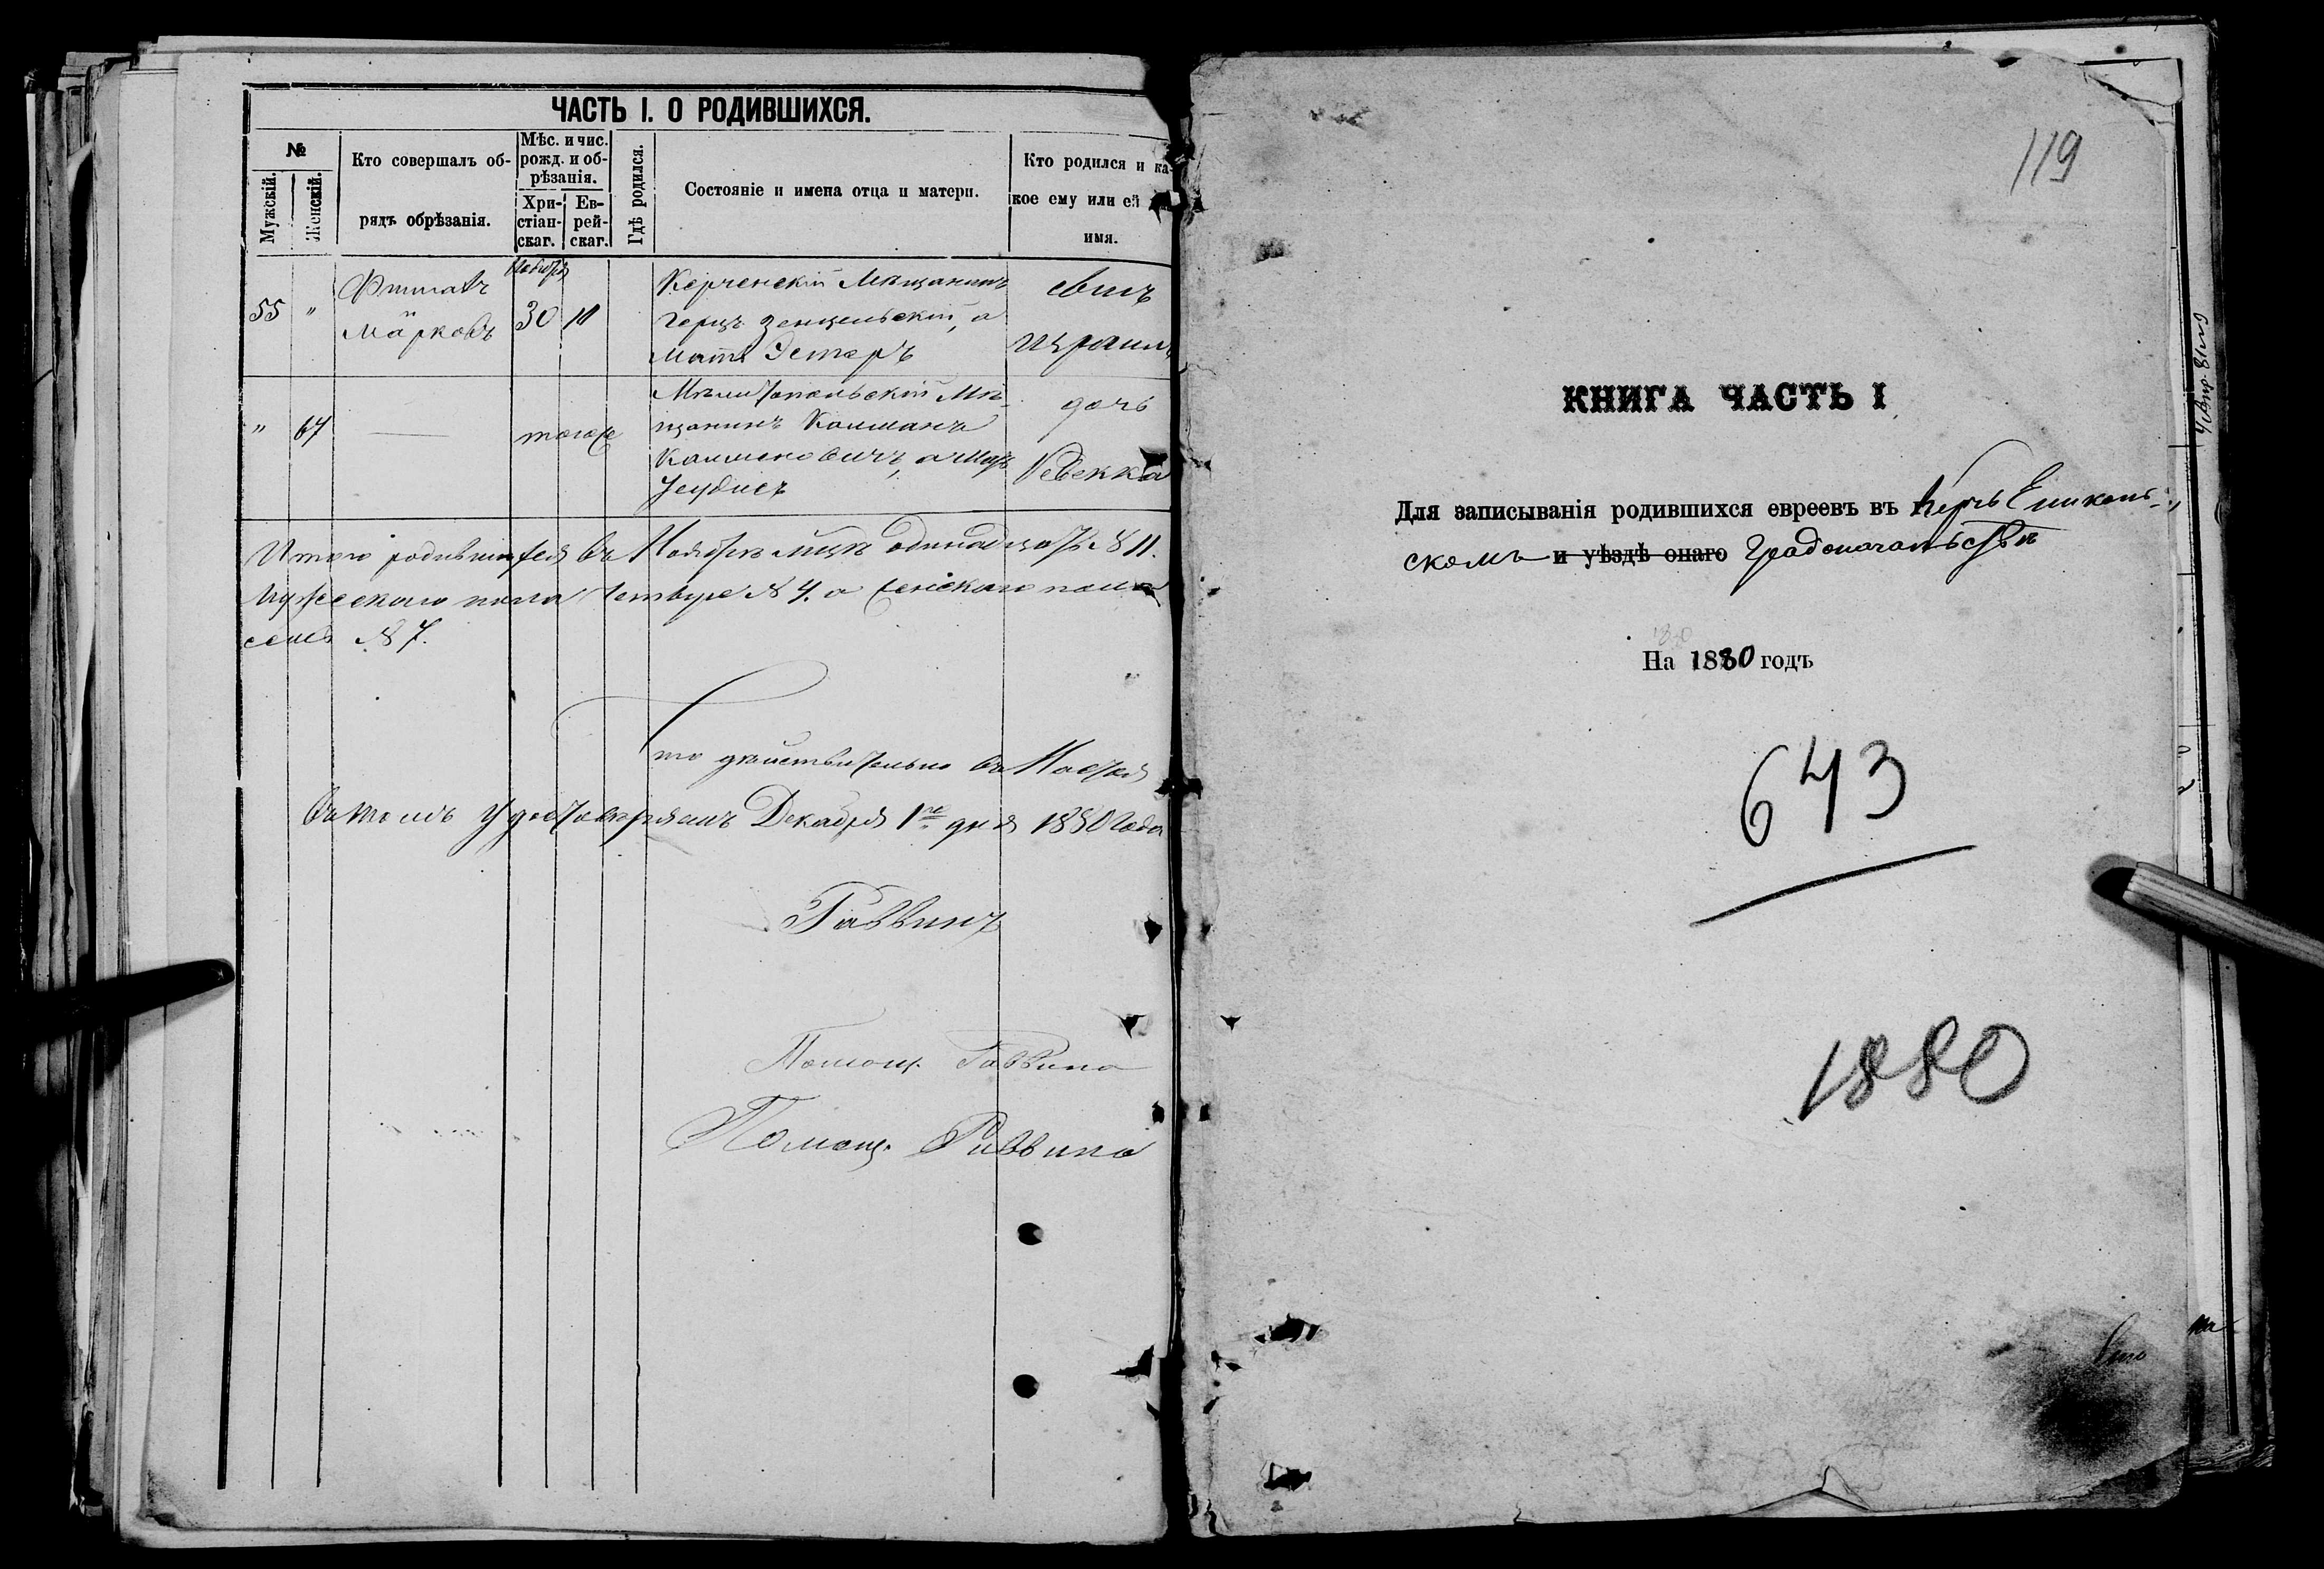 ЧАСТЬ I. О РОДИВШИХСЯ.
№
Мужскій.
Женскій.
Кто совершалъ об-
рядъ обрѣзанія.
Мѣс. и чис.
рожд. и об-
рѣзанія.
Хри-
стіан-
скаг.
Ев-
рей-
скаг.
Гдѣ родился.
Состояніе и имена отца и матери.
Кто родился и ка-
кое ему или ей
имя.
Ноября
55 "
Марковъ
30
Керченскій Мѣщанинъ
Герцъ, а
Мать Эстеръ
сынъ
Израиль
" 67
—
тогоже
Мелитопольскій Мѣ-
щанинъ Калманъ
Калмановичъ, а Мать
дочь
Ревекка
Итого родившихся въ Ноябрѣ мцѣ одинадцать № 11.
Мужескаго пола четыре № 4. а женскаго пола
семь № 7.
Что дѣйствительно въ Ноябрѣ
въ томъ удостовѣряемъ Декабря 1го дня 1880 года
Раввинъ
Помощ. Раввина
Помощ. Раввина
119
КНИГА ЧАСТЬ I
Для записыванія родившихся евреевъ въ Керчь Еникаль-
скомъ и уѣздѣ онаго Градоначальствѣ
На 1880 годъ
643
1880